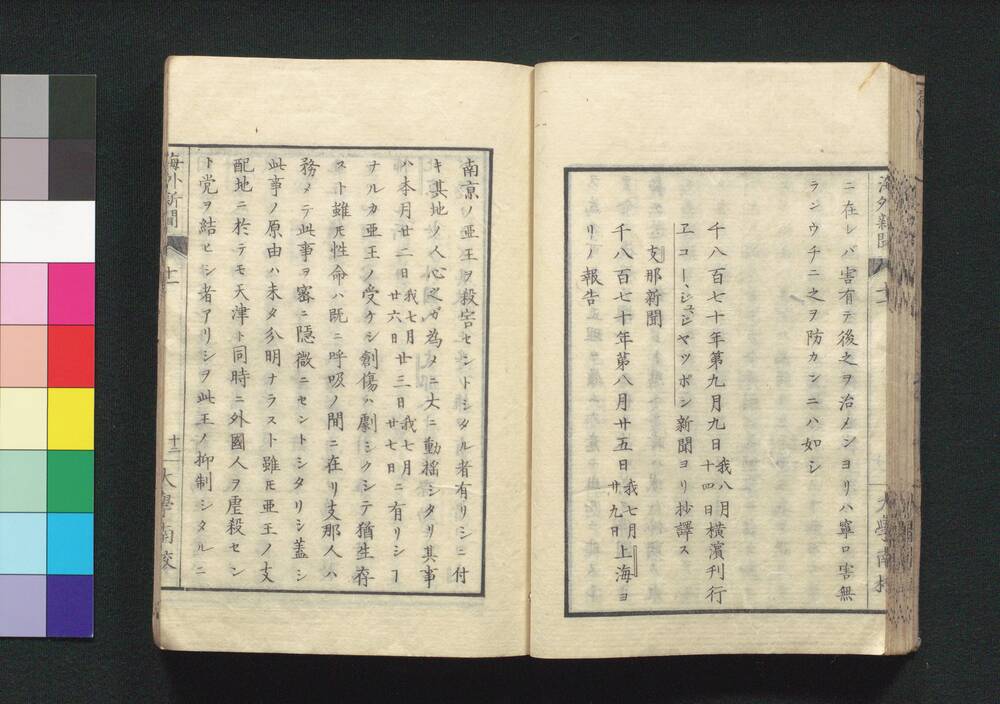 海外新聞
大學南校
ニ在レバ害有テ後之ヲ治メンヨリハ寧ロ害無
ラシウチニ之ヲ防カンニハ如シ
千八百七十年第九月九日我八月十四日横濱刊行
エコー、ジシヤツポン新聞ヨリ抄譯ス
支那新聞
千八百七十年第八月廿五日我七月廿九日上海ヨ
リノ報告
南京ノ亜王ヲ殺害セントシタル者有リシニ付
キ其地ノ人心之ガ為メニ大ニ動揺シタリ其事
ハ本月廿二日我七月廿六日廿三日我七月廿七日ニ有リシヿ
ナルカ亜王ノ受ケシ創傷ハ劇シクシテ猶生存
スト雖𪜈性命ハ既ニ呼吸ノ間ニ在リ支那人ハ
務メテ此事ヲ密ニ隠微ニセントシタリシ蓋シ
此事ノ原由ハ未タ分明ナラスト雖𪜈亜王ノ支
配地ニ於テモ天津ト同時ニ外國人ヲ虐殺セン
ト党ヲ結ヒシ者アリシヲ此王ノ抑制シタルニ
海外新聞
十一
十二
大學南校